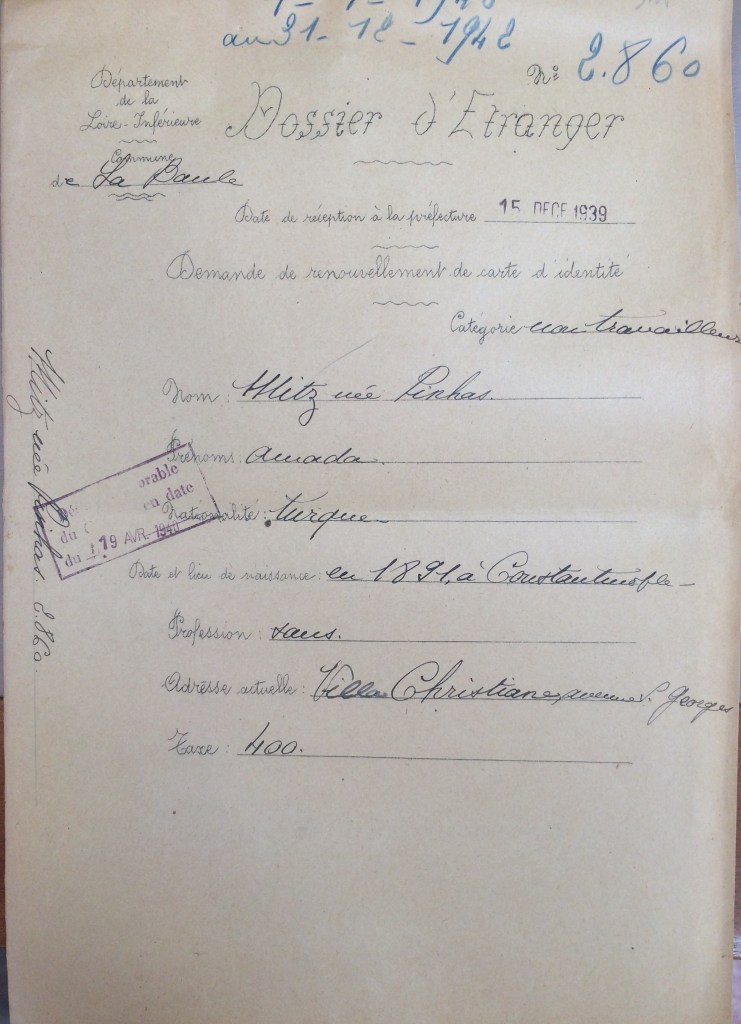 au 31-12-1942
Nº 2.860
Département
de la
Loire-Inférieure
Commune
de La Baule
Dossier d'Etranger
Date de réception à la préfecture 15 DECE 1939
Demande de renouvellement de carte d'identité
Catégorie non travailleur
Nom: Mitz née Pinhas.
Prénoms: Amada
Nationalité: turque
Date et lieu de naissance: en 1891, à Constantinople
Profession: sans.
Adresse actuelle: Villa Christiane, avenue S. Georges
Taxe: 400.
orable
du en date
du 19 AVR. 1940
Mitz née Pinhas. 2.860.